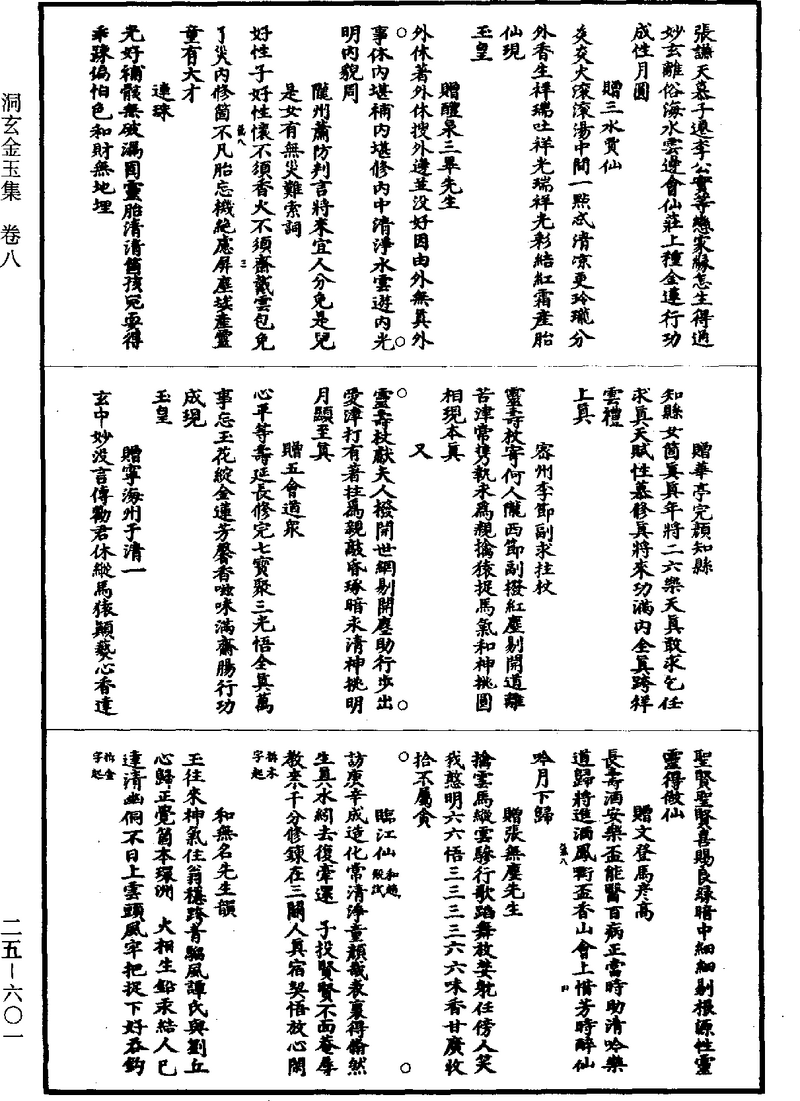 洞玄金玉集　卷八
張謙天慕子遼李公實等戀家緣怎生得過
妙玄離俗海水雲邊會仙莊上種金蓮行功
成性月圓
贈三水賈仙
炎炎火滾滾湯中間一點忒清涼更玲瓏分
外香生祥瑞吐祥光瑞祥光彩結紅霜產胎
仙現
玉皇
贈醴泉三翠先生
外休著外休搜外邊並没好因由外無真外
事休内堪補内堪修内中清淨水雲遊内光
明内貌周
隴州蕭防判言將來宜人分免是兒
是女有無災難索詞
好性子好性懷不須香火不須齋戴雲包免
了災内修箇不凡胎忘機絶慮屏塵埃產靈
童有大才
連珠
光好補骸無破漏固靈胎清清箇孩兒要得
乖踈偏怕色和財無地埋
贈華亭完顔知縣
知縣女箇真真年將二六樂天真敢求乞任
求真天賦性慕修真將來功滿内全真跨祥
雲禮
上真
密州李節副求拄杖
靈壽杖寄何人隴西節副撥紅塵剔開道離
苦津常携執永爲親擒猿捉馬氣和神挑圓
相現本真
又
靈壽杖獻夫人撥開世網剔開塵助行步出
愛津打有著拄爲親敲昏琢暗永清神挑明
月顯至真
贈五會道衆
心平等壽延長修完七寶聚三光悟全真萬
事忘玉花綻金蓮芳馨香嗞味滿齋腸行功
成現
玉皇
贈寧海州于清一
玄中妙没言傳勸君休縱馬猿顛爇心香達
聖賢聖賢喜賜良緣暗中細細剔根源性靈
靈得做仙
贈文登馬彦高
長壽酒安樂盃能醫百病正當時助清吟樂
道歸將進酒鳳銜盃香山會上惜芳時醉仙
吟月下歸
贈張無塵先生
搶雲馬縱雲驂行歌蹈舞放婪躭任傍人笑
我憨明六六悟三三三三六六味香甘廣收
拾不屬貪
臨江仙
訪庚辛成造化常清淨童顔哉衰裏得翛然
生真水紉去復牽還　子投賢賢不面菴辱
教來千分修鍊在三關人真宿契悟放心閑
和無名先生韻
王往來神氣住翁穩跨青騧風譚氏與劉丘
心歸正覺箇本環洲　火相生鉛汞結人巳
達清幽侗不日上雲頭風牢把捉下好吞鈎
二五-六〇一